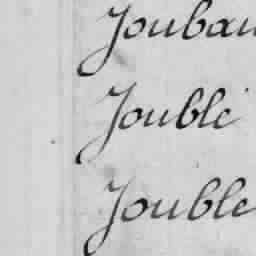 Jouban
Joublé
Jouble